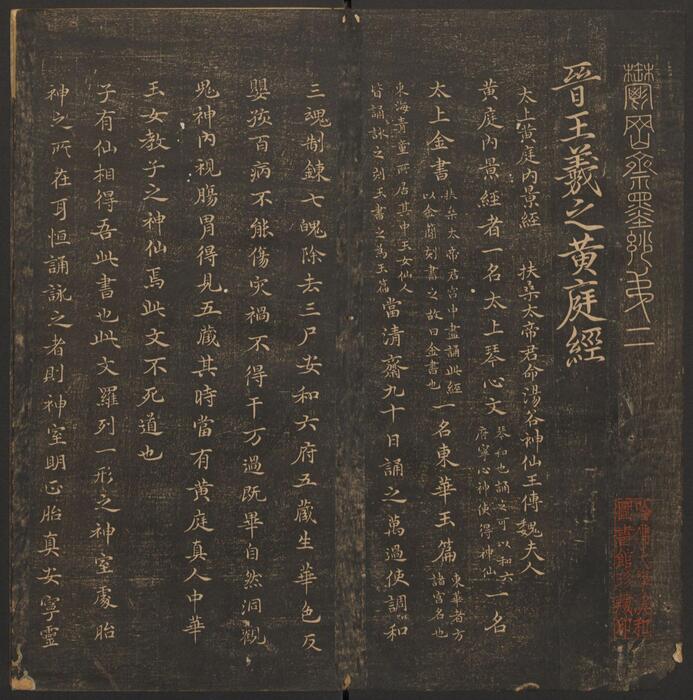 鬱岡齋墨妙弟二
晉王羲之黄庭經
太上黄庭内景經 扶桑太帝君命湯谷神仙王傳魏夫人
黄庭内景經者一名太上琴心文琴和也誦之可以和六府寧心神使得神仙一名
太上金書扶桑太帝君宫中盡誦此經以金簡刻書之故曰金書也一名東華玉篇東華者方諸宫名也
東海青童所居其中玉女仙人皆誦詠之刻玉書之爲玉篇當清齋九十日誦之萬過使調和
三魂制鍊七魄除去三尸安和六府五藏生華色反
嬰孩百病不能傷灾禍不得干万過既畢自然洞觀
鬼神内視腸胃得見五藏其時當有黄庭真人中華
玉女教子之神仙焉此文不死道也
子有仙相得吾此書也此文羅列一形之神室處胎
神之所在耳恒誦詠之者則神室明正胎真安寧靈
哈佛大學漢和
圖書館珍藏印